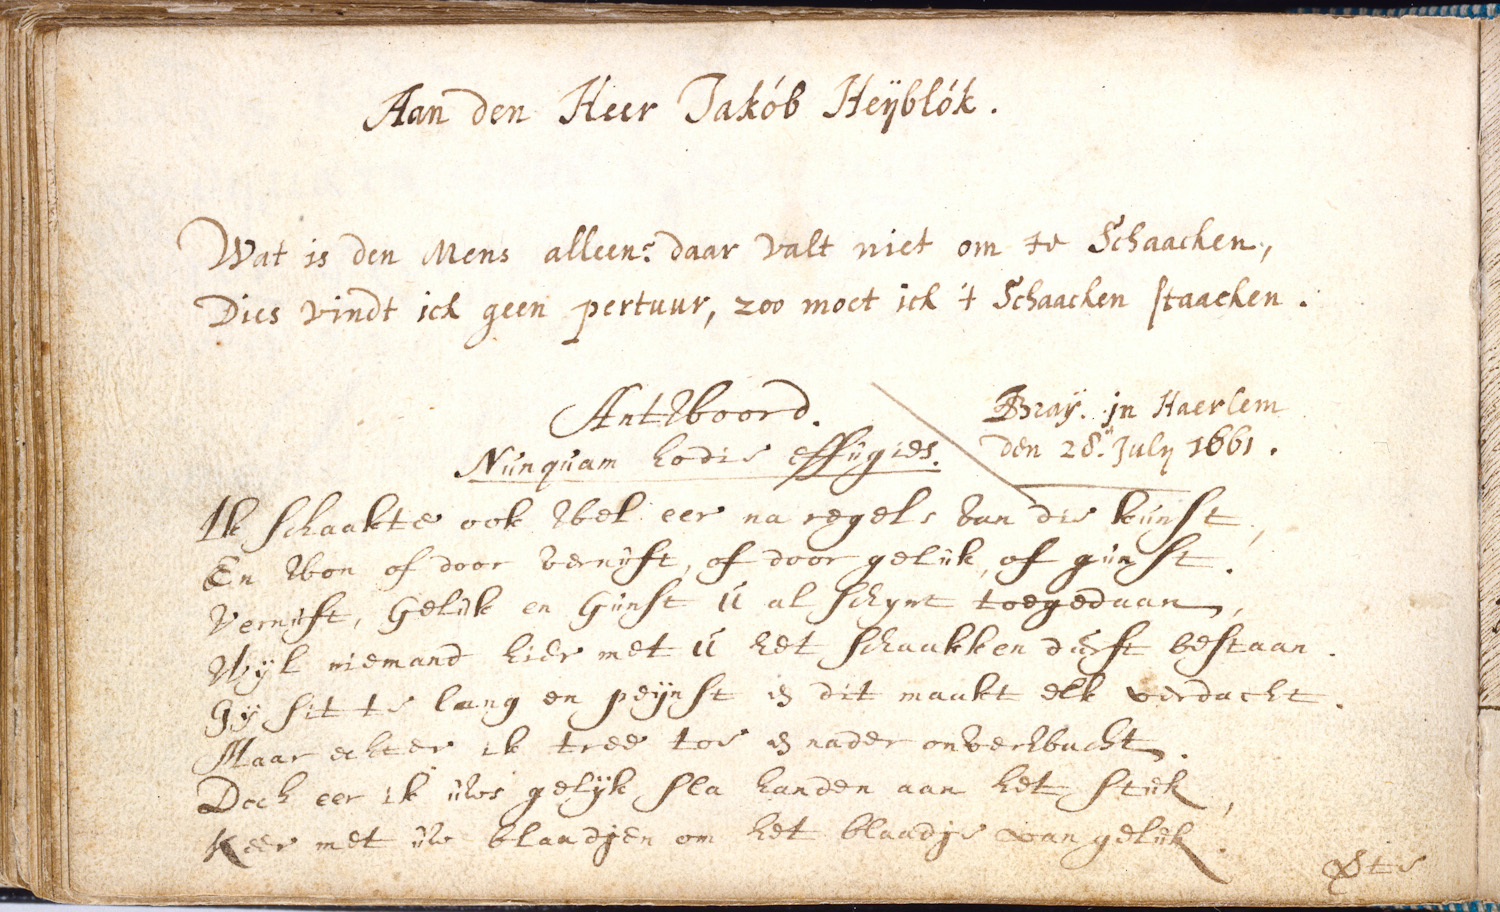 Aan den Heer Jakób Heÿblók.
Wat is den Mens alleen? daar valt niet om te Schaacken,
Dies vindt ick geen pertuur, zoo moet ick 't Schaacken staacken.
Antwoord.
Nunquam hodie effugies.
Bray. in Haerlem
den 28. July 1661.
Ik schaakte ook wel eer na regels van die kunst,
En won of door vernuft, of door geluk, of gunst.
Vernuft, Geluk en Gunst u al schynt toegedaan,
Wyl niemand hier met u het schaakken durft bestaan.
Gy sit te lang en peynst & dit maakt elk verdacht.
Maar echter ik tree toe & nader onverwacht.
Doch eer ik uws gelyk sla handen aan het stuk,
Keer met uw blaadjen om het blaadje van geluk.